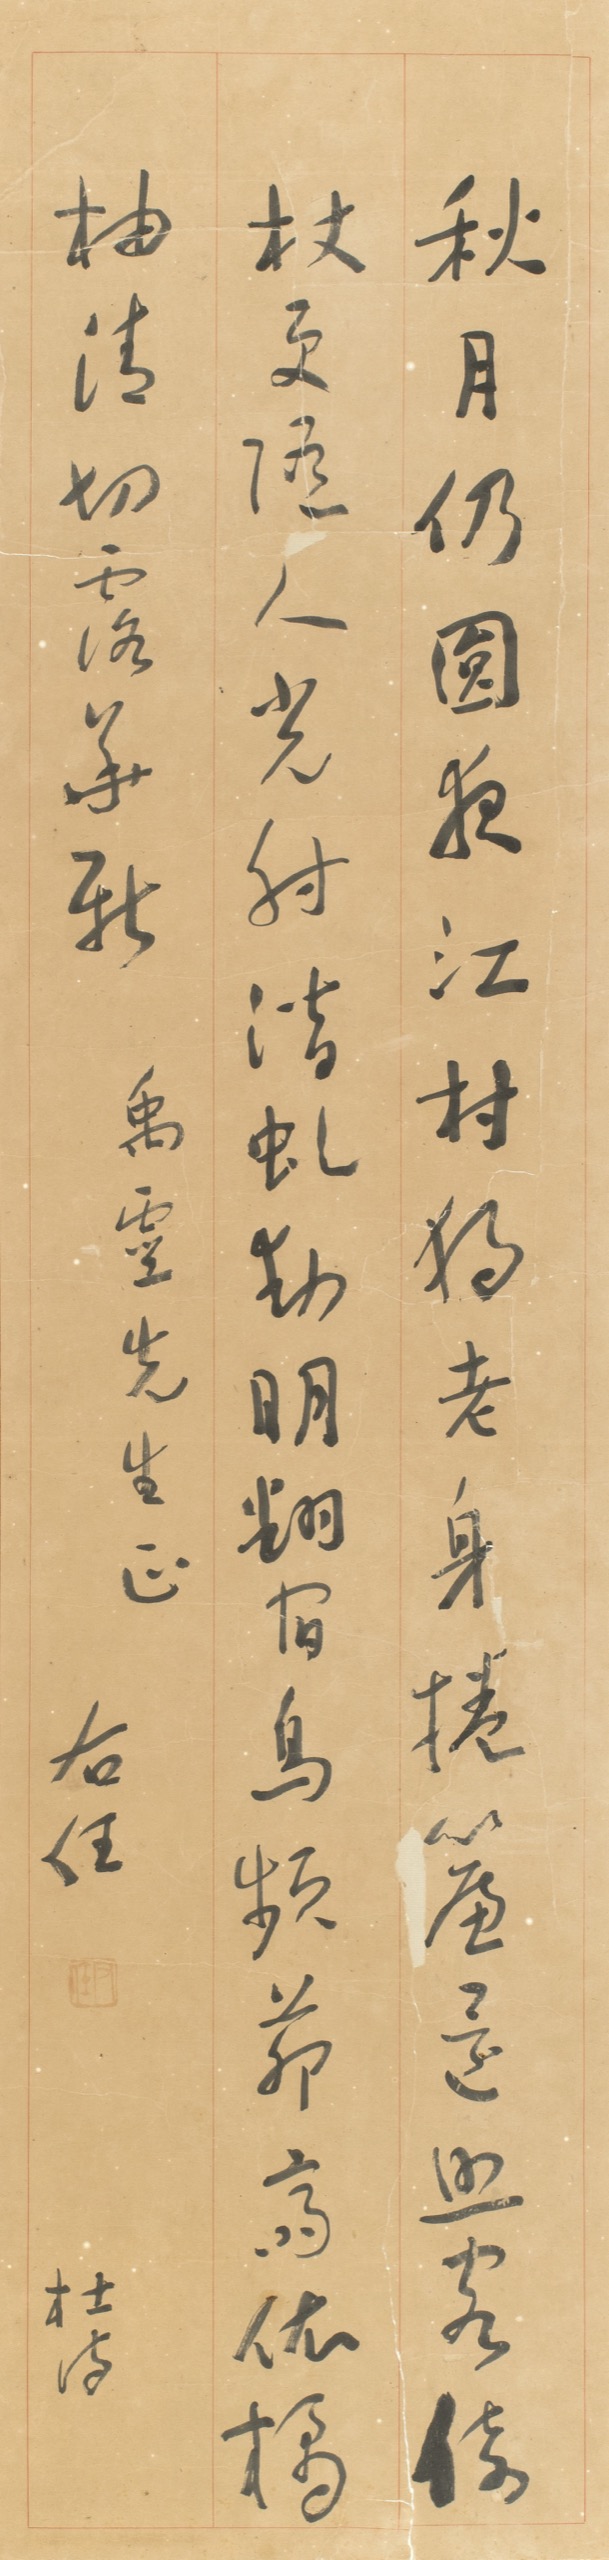 秋月仍圓夜江村獨老身捲簾還照客倚
杖更隨人光射潛虬動明翻宿鳥頻茆齋依橘
柚清切露華新
禹靈先生正
右任
杜詩